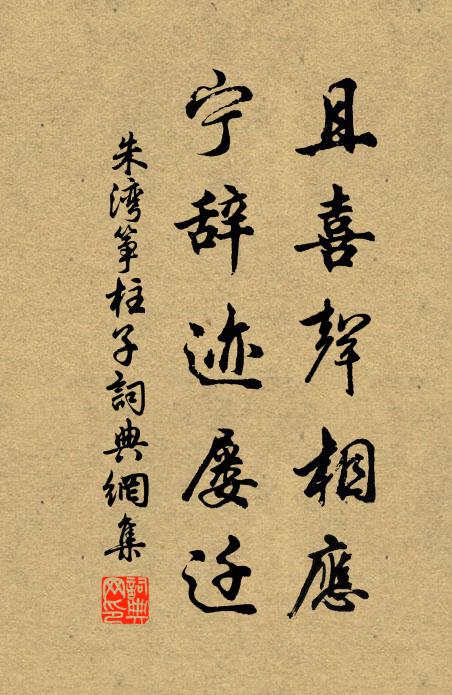 且喜聲相應
宁辞迹屡迁
朱湾筝柱子詞典網集
詞典网印